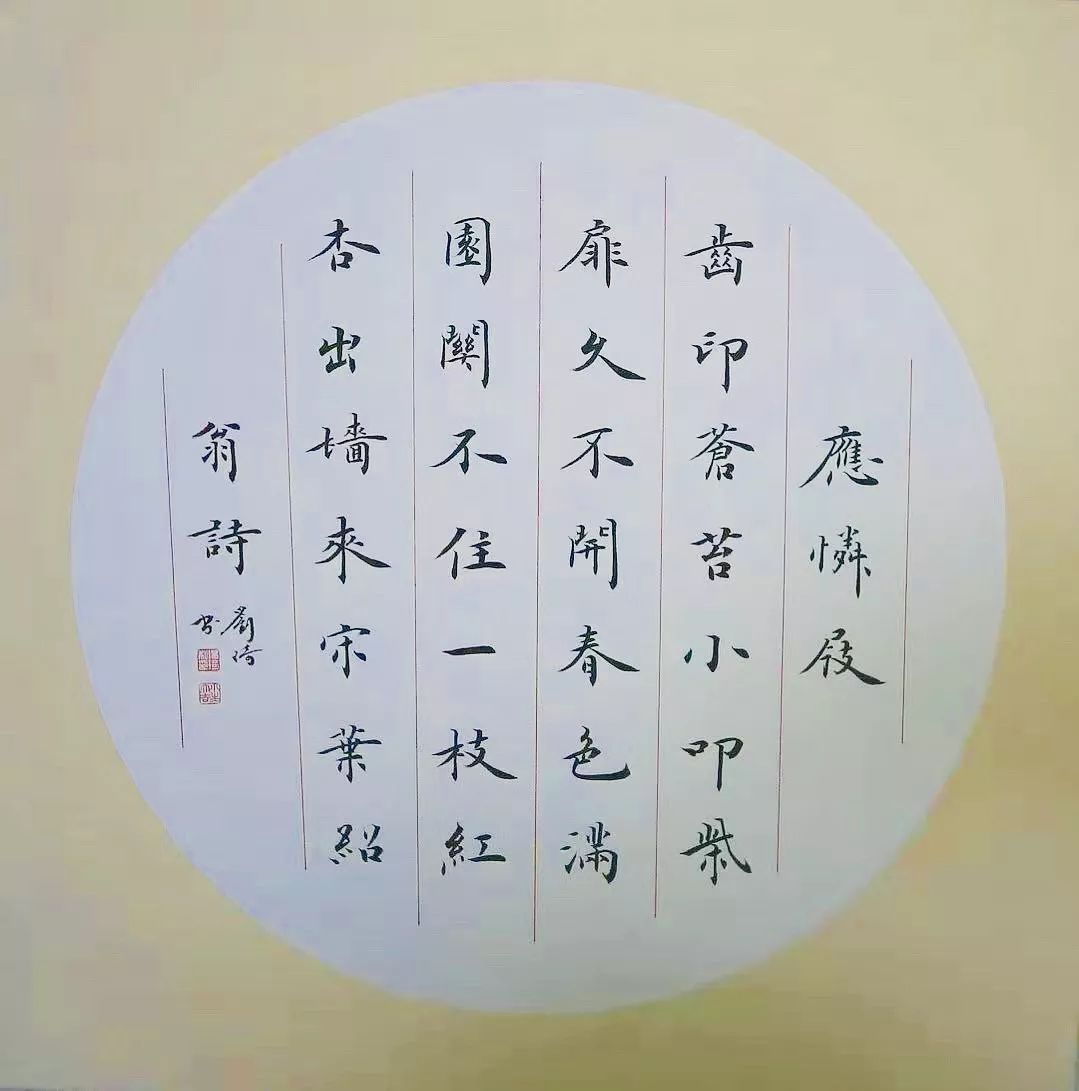 應憐屐
齒印蒼苔小叩柴
扉久不開春色滿
園關不住一枝紅
杏出墻來宋葉紹
翁詩
劉
書